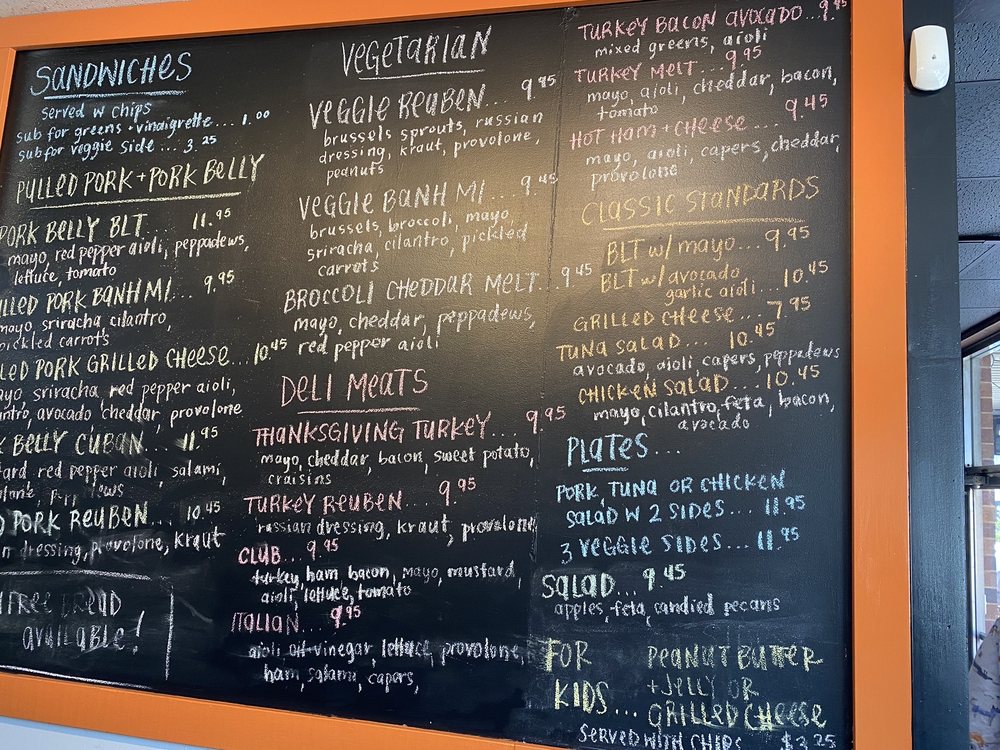 SANDWICHES
served w chips
sub for greens + vinaigrette... 1.00
sub for veggie side... 3.25
PULLED PORK + PORK BELLY
PORK BELLY BLT... 11.95
mayo, red pepper aioli, peppadews,
lettuce, tomato
LLED PORK BANH MI... 9.95
mayo, sriracha, cilantro,
pickled carrots
LED PORK GRILLED CHEESE... 10.45
ayo, sriracha, red pepper aioli,
antro, avocado, cheddar, provolone
BELLY CUBAN... 11.95
tard, red pepper aioli, salami,
D PORK REUBEN... 10.45
n dressing, provolone, kraut
FREE BREAD
available!
VEGETARIAN
VEGGIE REUBEN... 9.95
brussels sprouts, russian
dressing, kraut, provolone,
peanuts
VEGGIE BANH MI... 9.45
brussels, broccoli, mayo,
sriracha, cilantro, pickled
carrots
BROCCOLI CHEDDAR MELT... 9.45
mayo, cheddar, peppadews,
red pepper aioli
DELI MEATS
THANKSGIVING TURKEY... 9.95
mayo, cheddar, bacon, sweet potato,
craisins
TURKEY REUBEN... 9.95
russian dressing, kraut, provolone
CLUB... 9.95
turkey, ham, bacon, mayo, mustard,
aioli, lettuce, tomato
ITALIAN... 9.95
aioli, oil + vinegar, lettuce, provolone,
ham, salami, capers,
TURKEY BACON AVOCADO... 9.95
mixed greens, aioli
TURKEY MELT... 9.95
mayo, aioli, cheddar, bacon,
tomato
HOT HAM + CHEESE... 9.45
mayo, aioli, capers, cheddar,
provolone
CLASSIC STANDARDS
BLT w/ mayo... 9.95
BLT w/ avocado,
garlic aioli... 10.45
GRILLED CHEESE... 7.95
TUNA SALAD... 10.45
avocado, aioli, capers, peppadews
CHICKEN SALAD... 10.45
mayo, cilantro, feta, bacon,
avocado
PLATES...
PORK, TUNA OR CHICKEN
SALAD W 2 SIDES... 11.95
3 VEGGIE SIDES... 11.95
SALAD... 9.45
apples, feta, candied pecans
FOR KIDS...
PEANUT BUTTER
+ JELLY OR
GRILLED CHEESE
SERVED WITH CHIPS $3.25